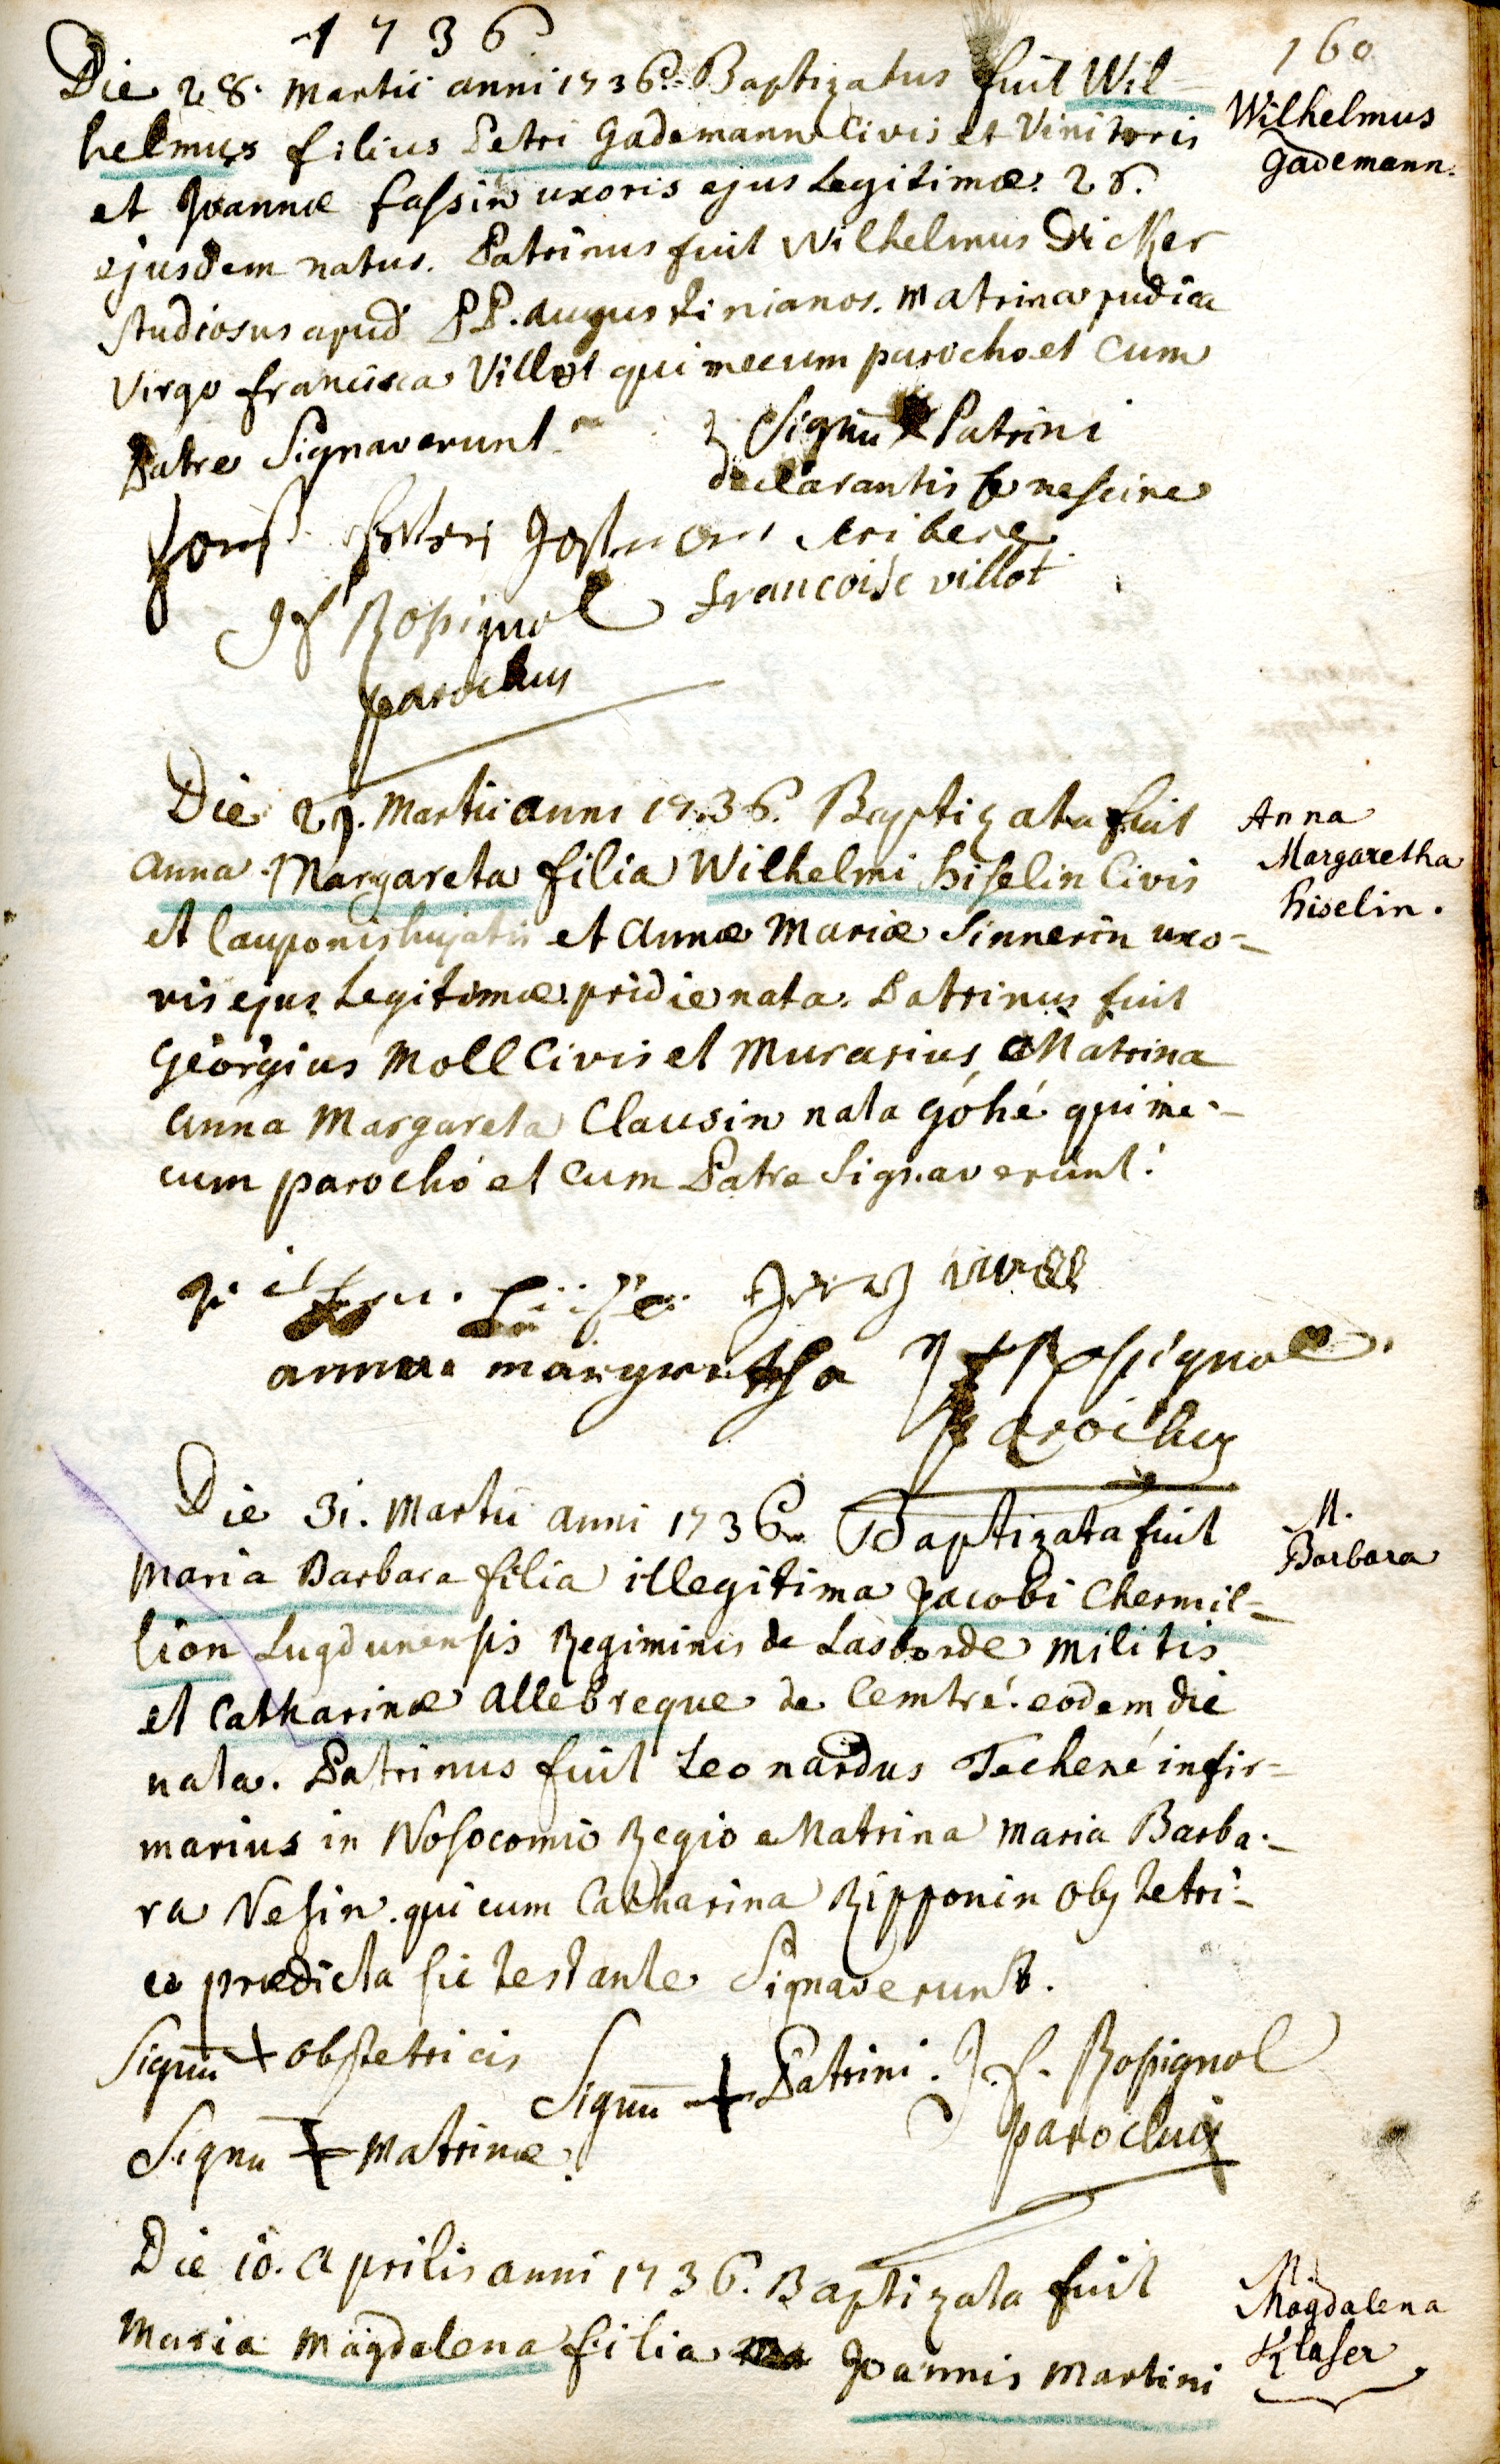 1736
160
Die 28. Martii anni 1736. Baptizatus fuit Wil-
helmus filius Petri Gademann Civis et Vinitoris
et Joannæ fassin uxoris ejus Legitimæ. 28.
ejusdem natus. Patrinus fuit Wilhelmus Dicker
studiosus apud PP. Augustinianos. Matrina pudica
Virgo francisca Villot qui mecum parocho et cum
Patre Signaverunt
Signū Patrini
declarantis se nescire
scribere
francoise villot
Jf Rossignol
parochus
Wilhelmus
Gademann.
Die 29. Martii anni 1736. Baptizata fuit
Anna Margareta filia Wilhelmi hiselin Civis
et Cauponis hujatis et Annæ Mariæ Sinnerin uxo-
ris ejus Legitimæ. pridie nata. Patrinus fuit
Georgius Moll Civis et Murarius, Matrina
Anna Margareta Clausin nata Góhé qui me-
cum parocho et cum Patre Signaverunt.
anna margretha Jf Rossignol
Parochus
Anna
Margaretha
hiselin.
Die 31. Martii anni 1736. Baptizata fuit
Maria Barbara filia illegitima Jacobi Chermil-
lion Lugdunensis Regiminis de Lasborde militis
et Catharinæ Allebreque de Cemtré. eodem die
nata. Patrinus fuit Leonardus Techené infir-
marius in Nosocomio Regio Matrina Maria Barba-
ra Nesin. qui cum Catharina Ripponin Obstetri-
ce prædicta sic testante Signaverunt.
Signū + Obstetricis
Signū + Patrini. J. f. Rossignol
parochus
Signū + Matrinæ.
M.
Barbara
Die 10. Aprilis anni 1736. Baptizata fuit
Maria Magdalena filia Joannis Martini
M.
Magdalena
Klaser